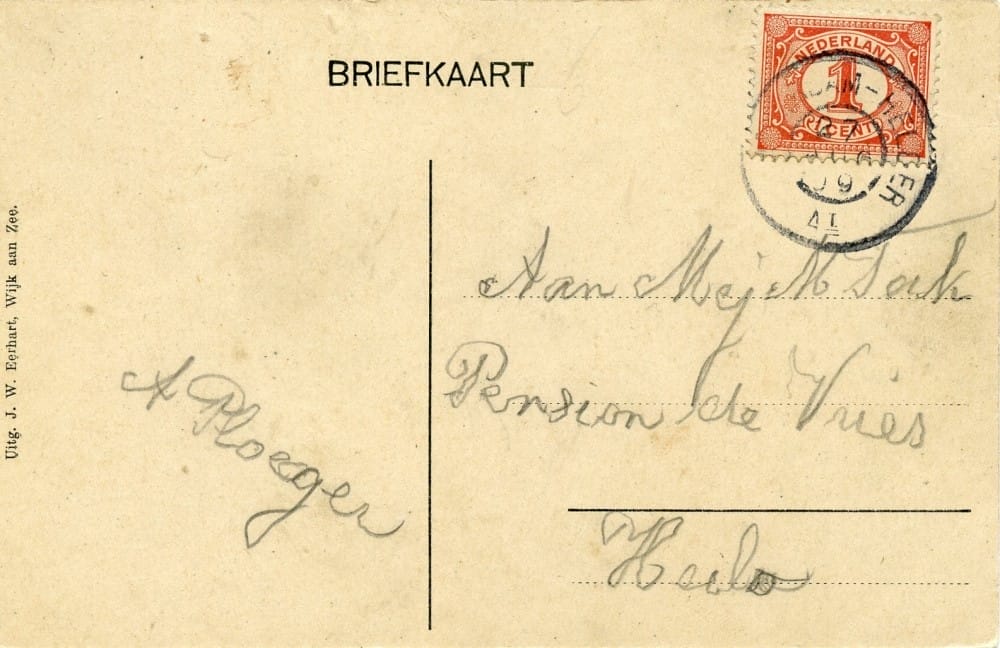 BRIEFKAART
NEDERLAND
1
CENT
DAM-HELDER
09
Uitg. J. W. Eerhart, Wijk aan Zee.
Aan Mej M Tak
Pension de Vries
Heilo
A Ploeger